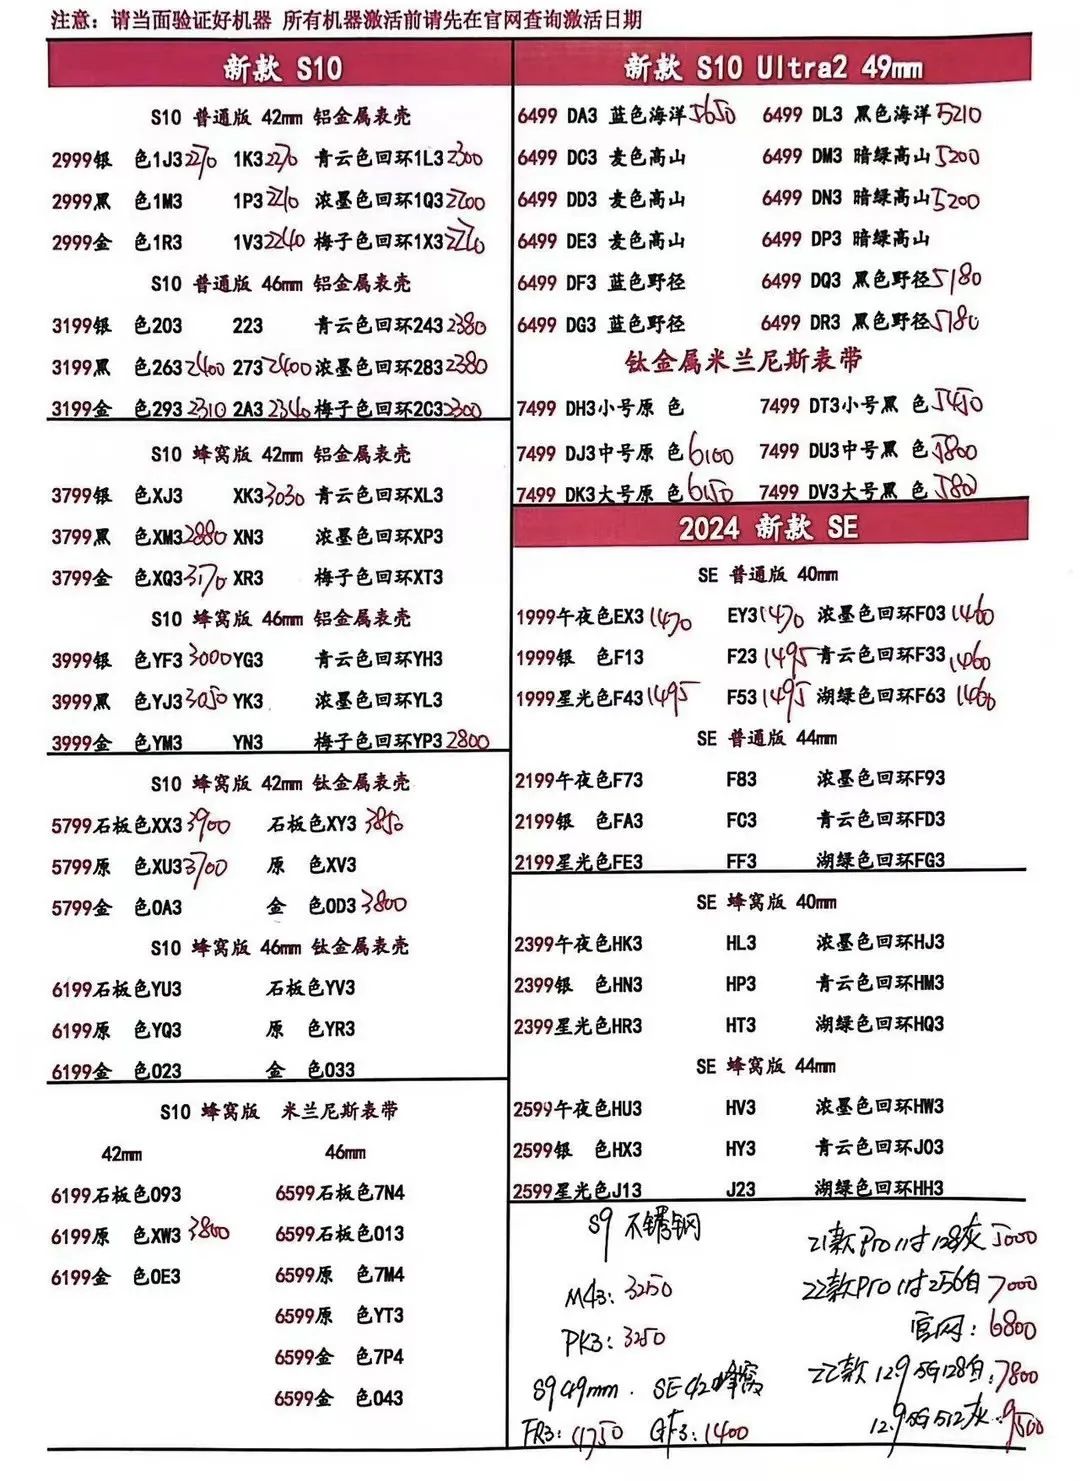 注意: 请当面验证好机器 所有机器激活前请先在官网查询激活日期
新款 S10
S10 普通版 42mm 铝合属表壳
2999银 色1J3 2270 1K3 2270 青云色回环1L3 2300
2999黑 色1M3 1P3 2210 浓墨色回环1Q3 2200
2999金 色1R3 1V3 2240 梅子色回环1X3 2220
S10 普通版 46mm 铝金属表壳
3199银 色203 223 青云色回环243 2380
3199黑 色263 2400 273 2400 浓墨色回环283 2380
3199金 色293 2310 2A3 2340 梅子色回环2C3 2300
S10 蜂窝版 42mm 铝金属表壳
3799银 色XJ3 XK3 3030 青云色回环XL3
3799黑 色XM3 2880 XN3 浓墨色回环XP3
3799金 色XQ3 3170 XR3 梅子色回环XT3
S10 蜂窝版 46mm 铝金属表壳
3999银 色YF3 3000 YG3 青云色回环YH3
3999黑 色YJ3 3050 YK3 浓墨色回环YL3
3999金 色YM3 YN3 梅子色回环YP3 2800
S10 蜂窝版 42mm 钛金属表壳
5799石板色XX3 3900 石板色XY3 3850
5799原 色XU3 3700 原 色XV3
5799金 色0A3 金 色0D3 3800
S10 蜂窝版 46mm 钛金属表壳
6199石板色YU3 石板色YV3
6199原 色YQ3 原 色YR3
6199金 色023 金 色033
S10 蜂窝版 米兰尼斯表带
42mm 46mm
6199石板色093 6599石板色7N4
6199原 色XW3 3800 6599石板色013
6199金 色0E3 6599原 色7M4
6599原 色YT3
6599金 色7P4
6599金 色043
新款 S10 Ultra2 49mm
6499 DA3 蓝色海洋 5650 6499 DL3 黑色海洋 5210
6499 DC3 麦色高山 6499 DM3 暗绿高山 5200
6499 DD3 麦色高山 6499 DN3 暗绿高山 5200
6499 DE3 麦色高山 6499 DP3 暗绿高山
6499 DF3 蓝色野径 6499 DQ3 黑色野径 5180
6499 DG3 蓝色野径 6499 DR3 黑色野径 5180
钛金属米兰尼斯表带
7499 DH3小号原 色 7499 DT3小号黑 色 5450
7499 DJ3中号原 色 6100 7499 DU3中号黑 色 5800
7499 DK3大号原 色 6150 7499 DV3大号黑 色 5800
2024 新款 SE
SE 普通版 40mm
1999午夜色EX3 1470 EY3 1470 浓墨色回环F03 1460
1999银 色F13 F23 1495 青云色回环F33 1460
1999星光色F43 1495 F53 1495 湖绿色回环F63 1460
SE 普通版 44mm
2199午夜色F73 F83 浓墨色回环F93
2199银 色FA3 FC3 青云色回环FD3
2199星光色FE3 FF3 湖绿色回环FG3
SE 蜂窝版 40mm
2399午夜色HK3 HL3 浓墨色回环HJ3
2399银 色HN3 HP3 青云色回环HM3
2399星光色HR3 HT3 湖绿色回环HQ3
SE 蜂窝版 44mm
2599午夜色HU3 HV3 浓墨色回环HW3
2599银 色HX3 HY3 青云色回环J03
2599星光色J13 J23 湖绿色回环HH3
S9 不锈钢
M43: 3250
PK3: 3250
S9 49mm. SE 42蜂窝
FR3: 4750 GF3: 1400
21款Pro 11寸128灰 5000
22款Pro 11寸256白 7000
官网: 6800
22款 12.9 5G 128白: 7800
12.9 5G 512灰: 9500